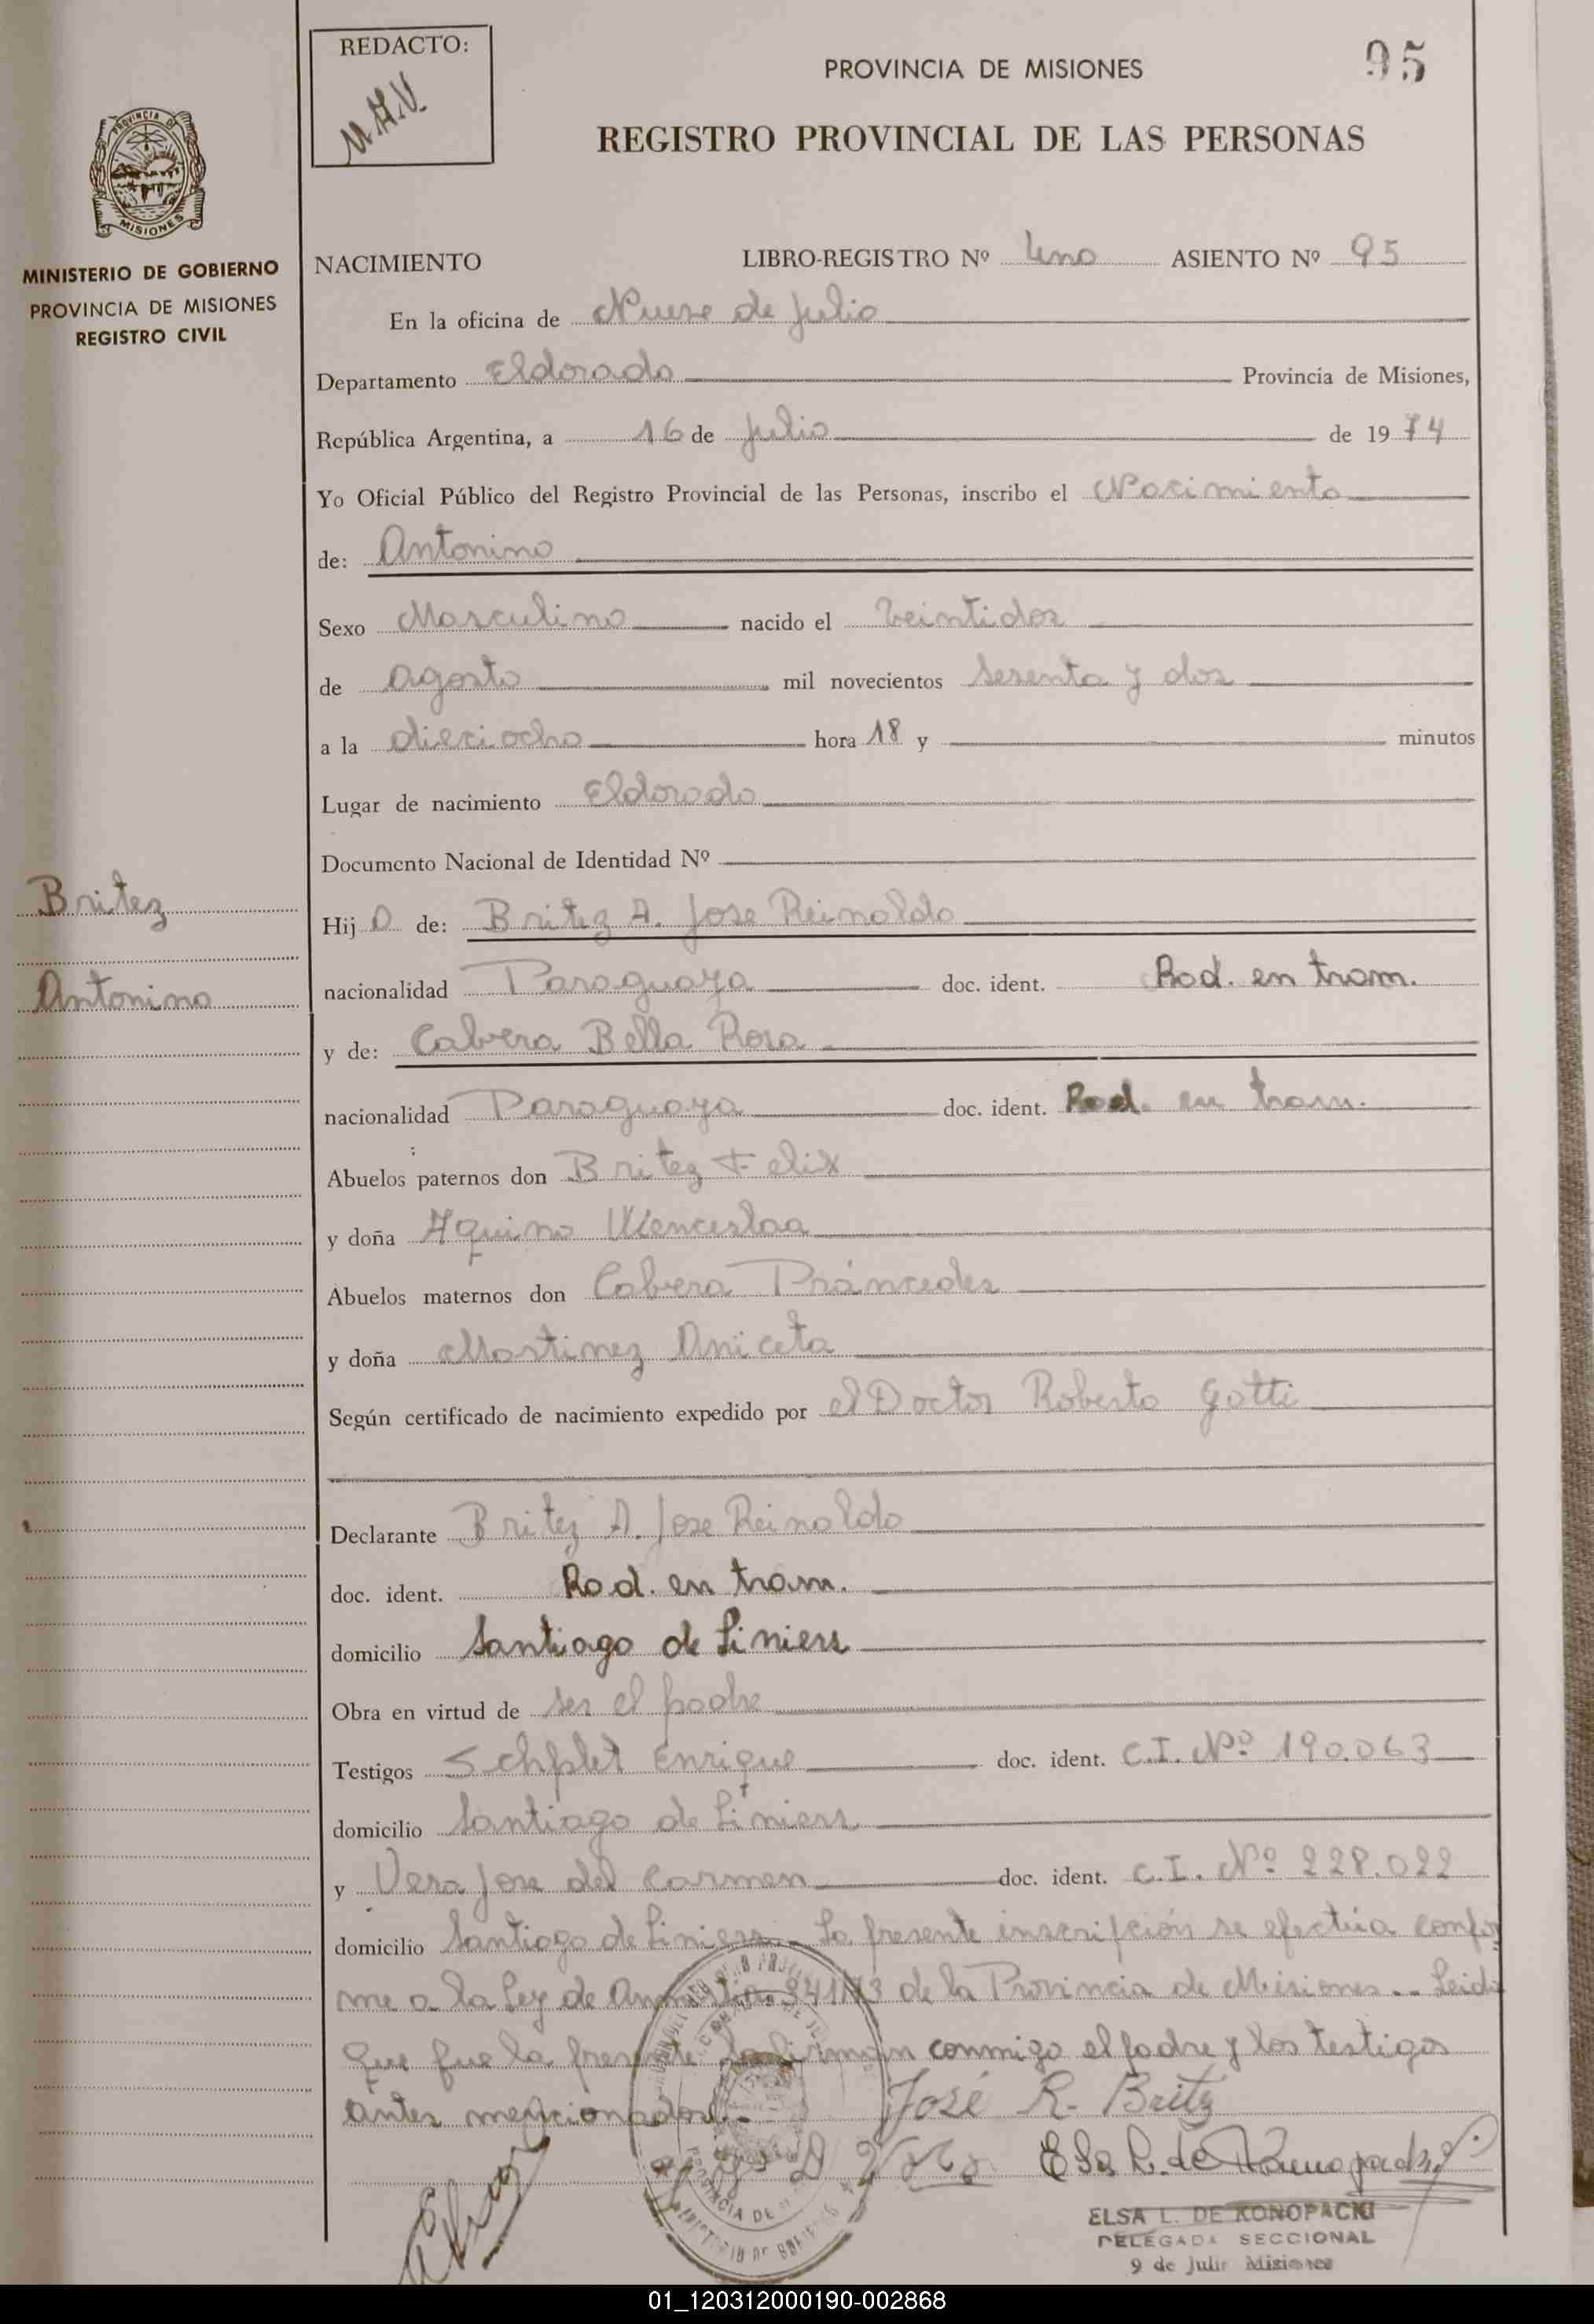 REDACTO:
M.H.V.
PROVINCIA DE MISIONES
95
REGISTRO PROVINCIAL DE LAS PERSONAS
PROVINCIA DE
MISIONES
MINISTERIO DE GOBIERNO
PROVINCIA DE MISIONES
REGISTRO CIVIL
NACIMIENTO LIBRO-REGISTRO Nº Uno ASIENTO Nº 95
En la oficina de Nueve de Julio
Departamento Eldorado Provincia de Misiones,
República Argentina, a 16 de Julio de 1974
Yo Oficial Público del Registro Provincial de las Personas, inscribo el Nacimiento
de: Antonino
Sexo Masculino nacido el Veintidos
de Agosto mil novecientos sesenta y dos
a la dieciocho hora 18 y minutos
Lugar de nacimiento Eldorado
Documento Nacional de Identidad Nº
Britez
Antonino
Hijo de: Britez A. Jose Reinaldo
nacionalidad Paraguaya doc. ident. Rad. en tram.
y de: Cabrera Bella Rosa
nacionalidad Paraguaya doc. ident. Rad. en tram.
Abuelos paternos don Britez Felix
y doña Aquino Wenceslaa
Abuelos maternos don Cabrera
y doña Martinez Aniceta
Según certificado de nacimiento expedido por el Doctor Roberto Gotti
Declarante Britez A. Jose Reinaldo
doc. ident. Rad. en tram.
domicilio Santiago de Liniers
Obra en virtud de ser el padre
Testigos Enrique doc. ident. C.I. Nº 190.063
domicilio Santiago de Liniers
y Vera Jose del Carmen doc. ident. C.I. Nº 228.022
domicilio Santiago de Liniers.. La presente inscripción se efectúa confor
me a la Ley de 341/73 de la Provincia de Misiones.. Leida
que fue la presente la firman conmigo el padre y los testigos
antes mencionados..
José R. Britez
ELSA L. DE KONOPACKI
DELEGADA SECCIONAL
9 de Julio Misiones
01_120312000190-002868